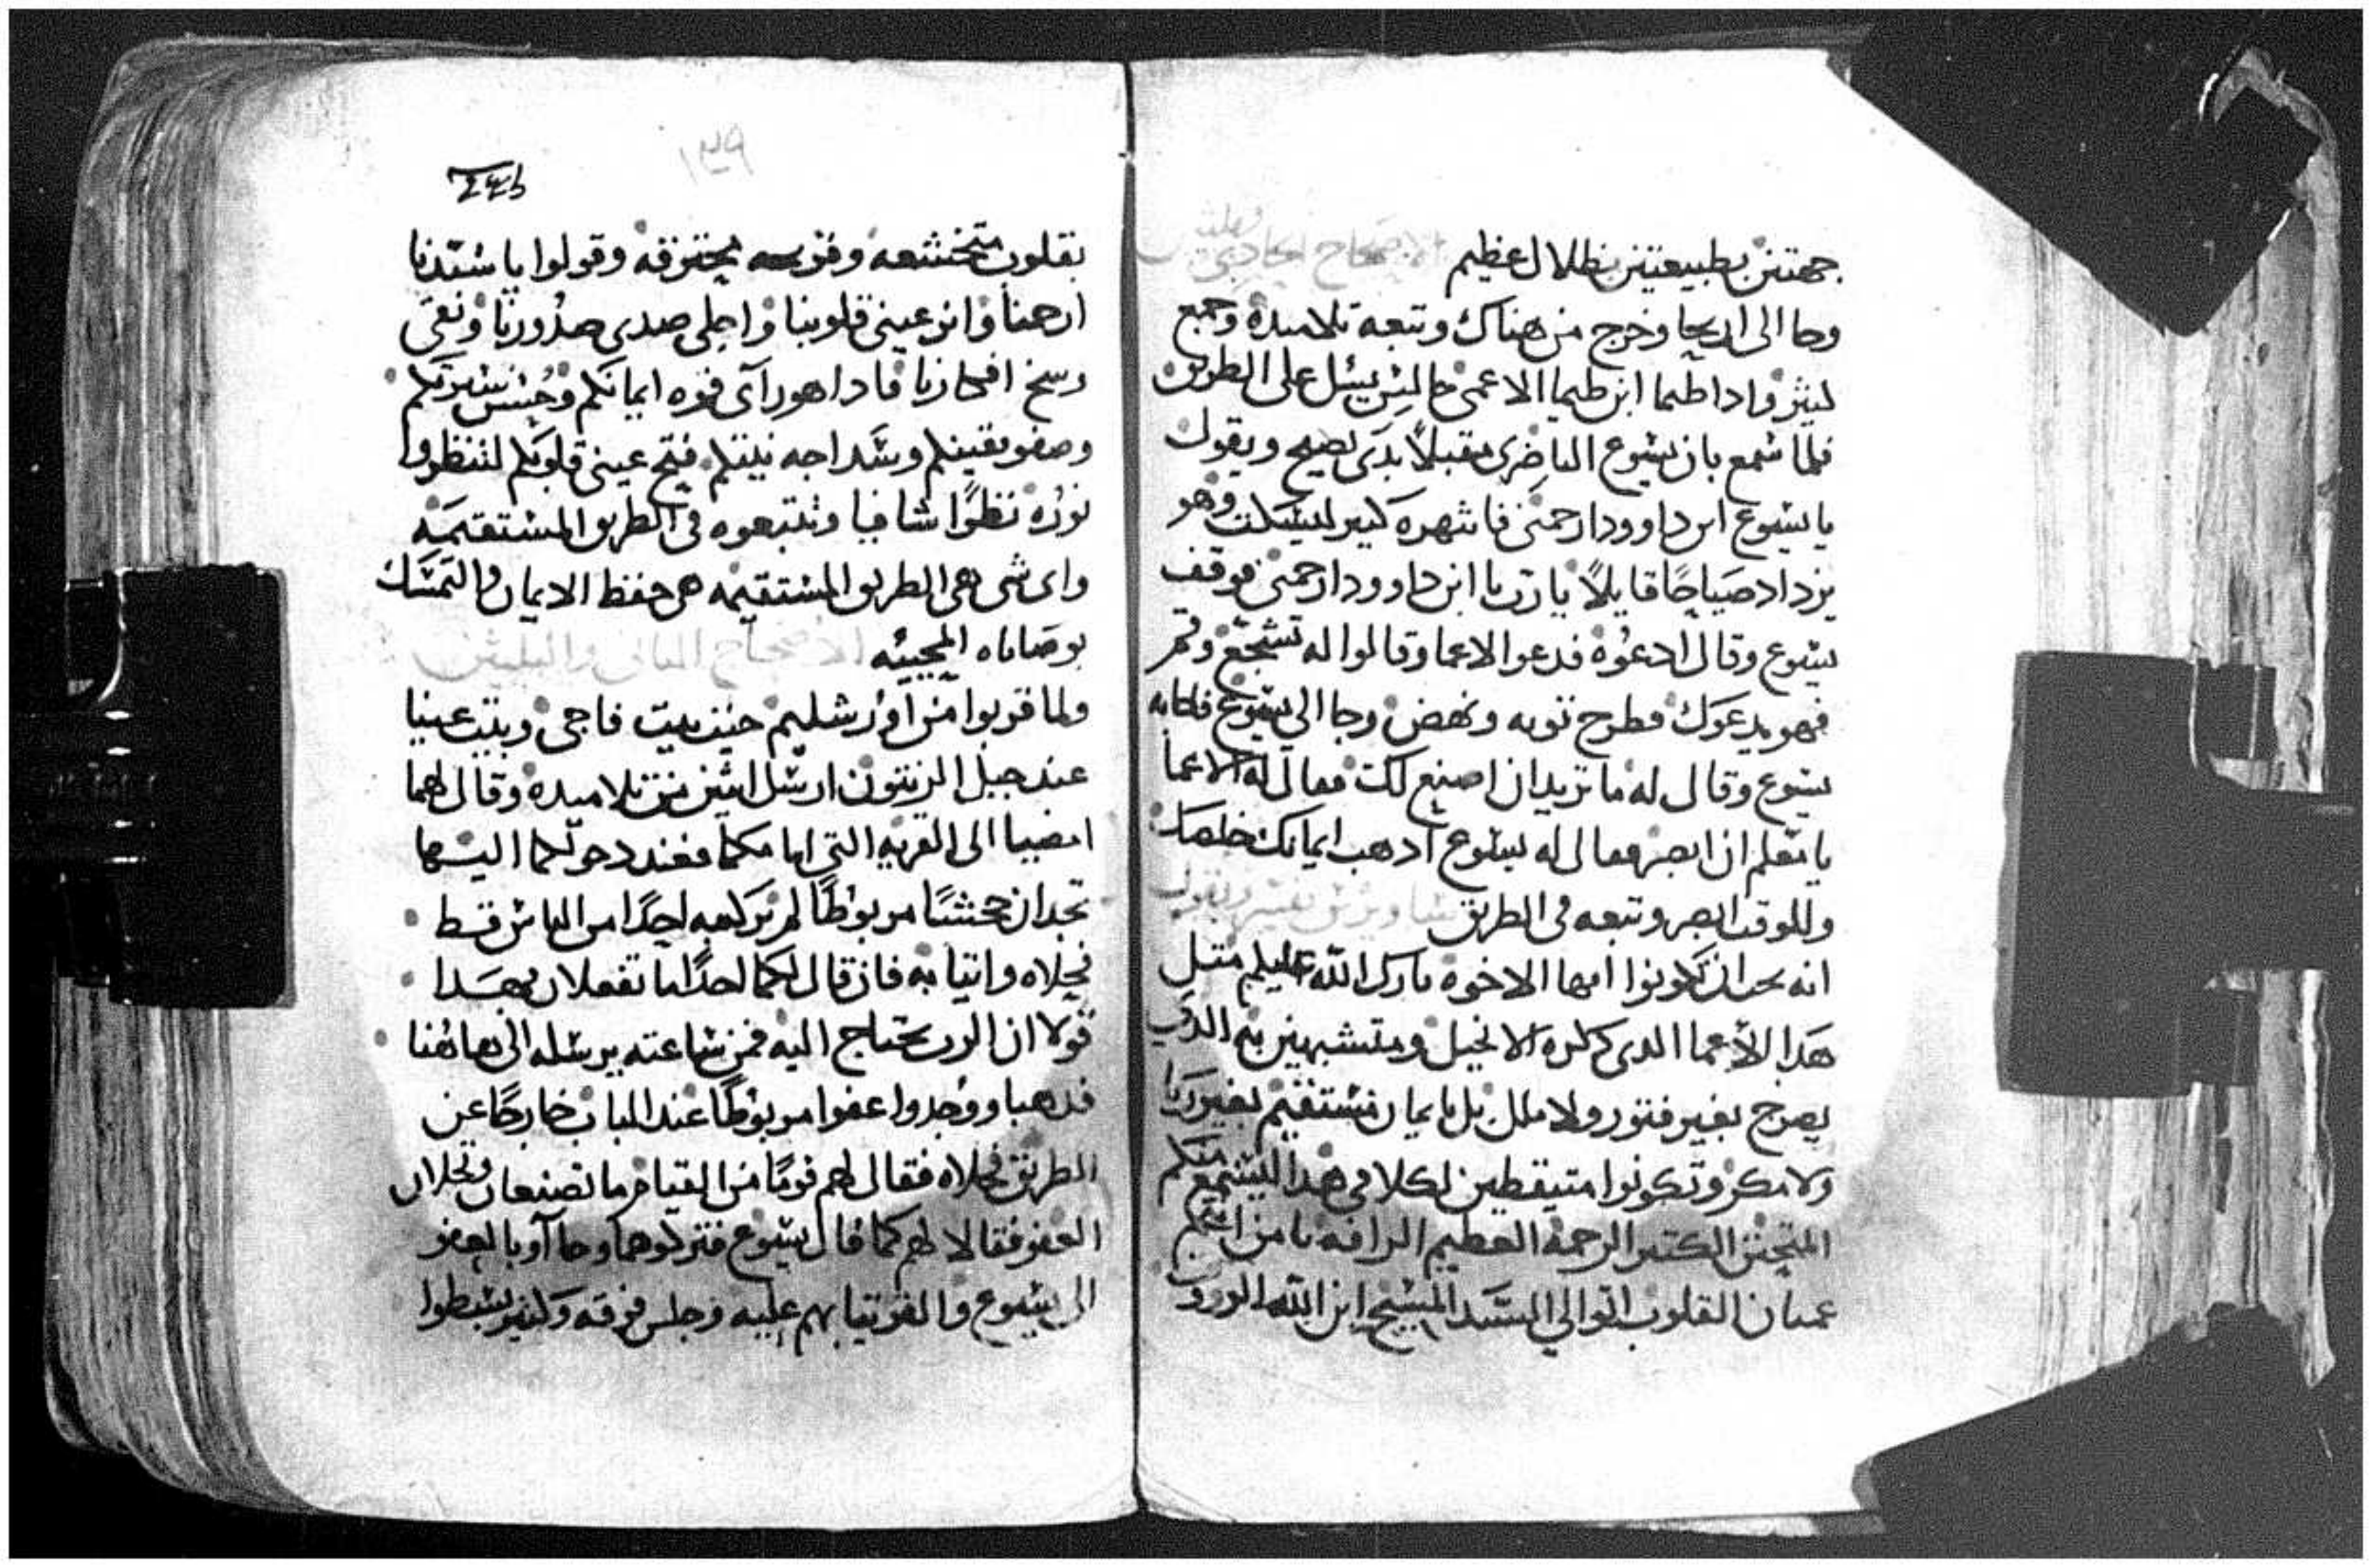 جهتين بطبيعتين بظلال عظيم الاصحاح الحادي وثلثين
وجا الى اريحا وخرج من هناك وتبعه تلاميده وجمع
كثير وادا طيما ابن طيما الاعمى جالس يسل على الطريق
فلما سمع بان يسوع الناضري مقبلاً بدى يصيح ويقول
يا يسوع ابن داوود ارحمني فانتهره كثير ليسكت وهو
يزداد صياحًا قايلاً يا رب يا ابن داوود ارحمني فوقف
يسوع وقال ادعوه فدعوا الاعما وقالوا له تشجع وقم
فهو يدعوك فطرح توبه ونهض وجا الى يسوع فاجابه
يسوع وقال له ما تريد ان اصنع لك فقال له الاعما
يا معلم ان ابصر فقال له يسوع ادهب ايمانك خلصك
وللوقت ابصر وتبعه في الطريق
انه يجب ان تكونوا ايها الاخوه بارك الله عليكم متل
هدا الاعما الدي دكره الانجيل ومتشبهين به الدي
يصرخ بغير فتور ولا ملل بل بايمان مستقيم بغير ريا
ولا مكر وتكونوا متيقظين لكلامي هدا ليسمع منكم
المتحنن الكتير الرحمة العظيم الرافه يا من
عميان القلوب اتوا الى السيد المسيح ابن الله الوروف
٢٤٤
١٣٩
بقلوب متخشعه ونفوس محترقه وقولوا يا سيدنا
ارحمنا وانر عيني قلوبنا واجلي صدى صدورنا ونقي
وسخ افكارنا فادا هو راى قوه ايمانكم وحسن سيرتكم
وصفو يقينكم وشداجه نيتكم فتح عيني قلوبكم لتنظروا
نوره نظرًا شافيا وتتبعوه في الطريق المستقيمه
واى شي هي الطريق المستقيمه هي حفظ الايمان والتمسك
بوصاياه المحييه الاصحاح التاني والتلتين
ولما قربوا من اورشليم حيث بيت فاجي وبيت عنيا
عند جبل الزيتون ارسل اتنين من تلاميده وقال لهما
امضيا الى القريه التي امامكما فعند دخولكما اليها
تجدان جحشًا مربوطًا لم يركبه احدًا من الناس قط
فحلاه واتيا به فان قال لكما احدًا ما تفعلان بهدا
قولا ان الرب يحتاج اليه فمن ساعته يرسله الى هاهنا
فدهبا ووجدوا عفوا مربوطًا عند الباب خارجًا عن
الطريق فحلاه فقال لهم قومًا من القيام ما تصنعان وتحلان
العفو فقالا لهم كما قال يسوع فتركوهما وجاآوا بالعفو
الى يسوع والقوا تيابهم عليه وجلس فوقه وكتير بسطوا